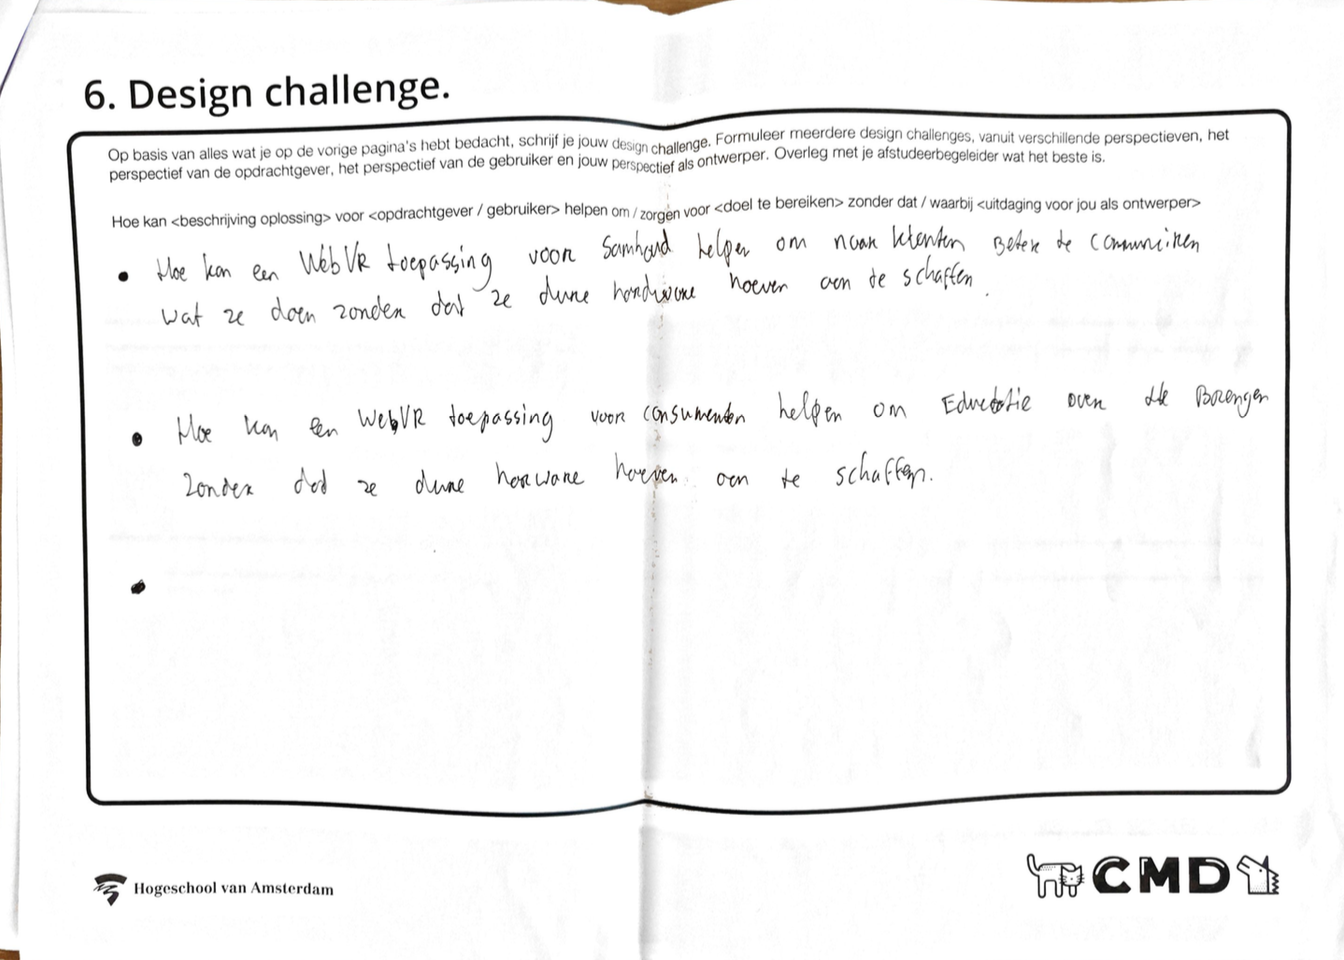 6. Design challenge.
Op basis van alles wat je op de vorige pagina's hebt bedacht, schrijf je jouw design challenge. Formuleer meerdere design challenges, vanuit verschillende perspectieven, het
perspectief van de opdrachtgever, het perspectief van de gebruiker en jouw perspectief als ontwerper. Overleg met je afstudeerbegeleider wat het beste is.
Hoe kan <beschrijving oplossing> voor <opdrachtgever / gebruiker> helpen om / zorgen voor <doel te bereiken> zonder dat / waarbij <uitdaging voor jou als ontwerper>
• Hoe kan een WebVR toepassing voor helpen om naar klanten Beter te
wat ze doen zonder dat ze dure hardware hoeven aan te schaffen.
• Hoe kan een WebVR toepassing voor consumenten helpen om over te Brengen
zonder dat ze dure harware hoeven aan te schaffen.
•
Hogeschool van Amsterdam
CMD